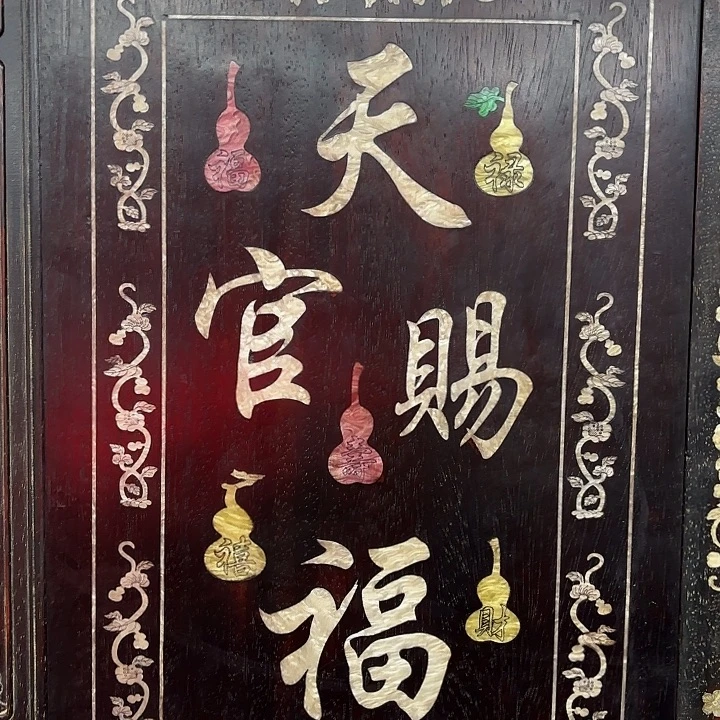 天
官
賜
福
福
禄
壽
禧
財